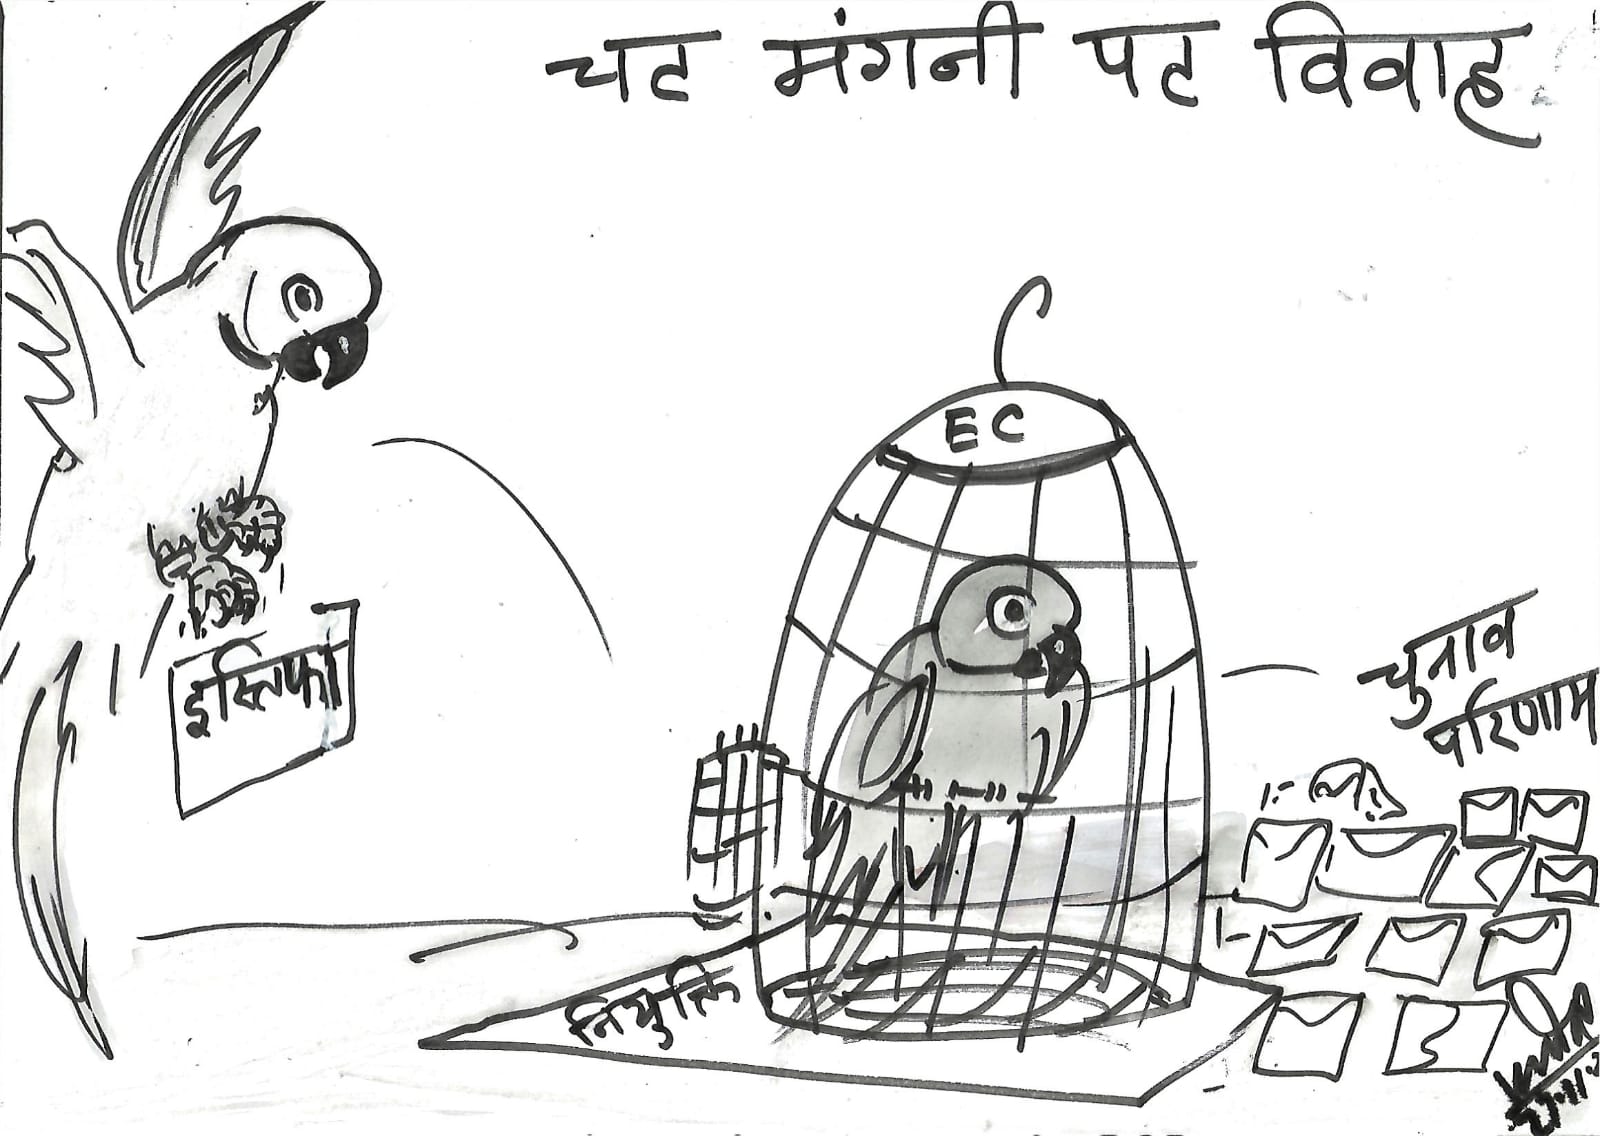 चट मंगनी पट विवाह
EC
इस्तिफा
चुनाव
परिणाम
नियुक्ति